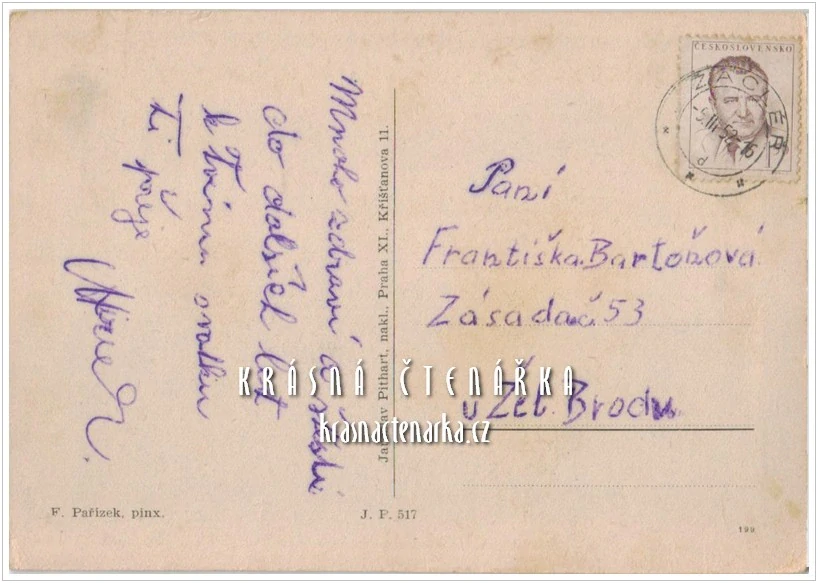 Mnoho zdraví a štěstí
do dalších let
k Tvému svátku
Ti přeje
ČESKOSLOVENSKO
Paní
Františka Bartoňová
Zásada č 53
u Žel. Brodu
Jaroslav Pithart, nakl., Praha XI., Křišťanova 11.
KRÁSNÁ ČTENÁŘKA
krasnactenarka.cz
F. Pařízek, pinx.
J. P. 517
199